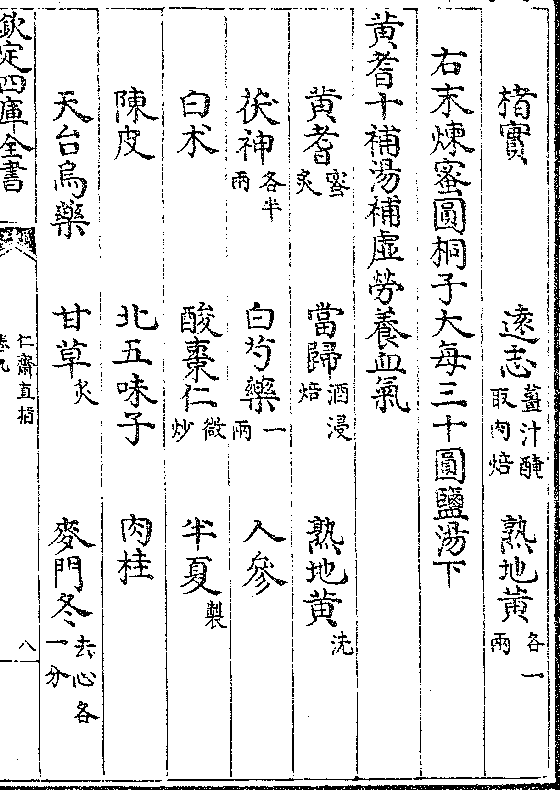 楮實　遠志薑汁醃取肉焙　熟地黄各一兩
右末煉蜜圓桐子大每三十圓鹽湯下
黄耆十補湯補虛勞養血氣
黄耆蜜炙　當歸酒浸焙　熟地黄洗
茯神各半兩　白芍藥一兩　人參
白朮　酸棗仁微炒　半夏製
陳皮　北五味子　肉桂
天台烏藥　甘草炙　麥門冬去心各一分
欽定四庫全書　仁齋直指　卷九　八